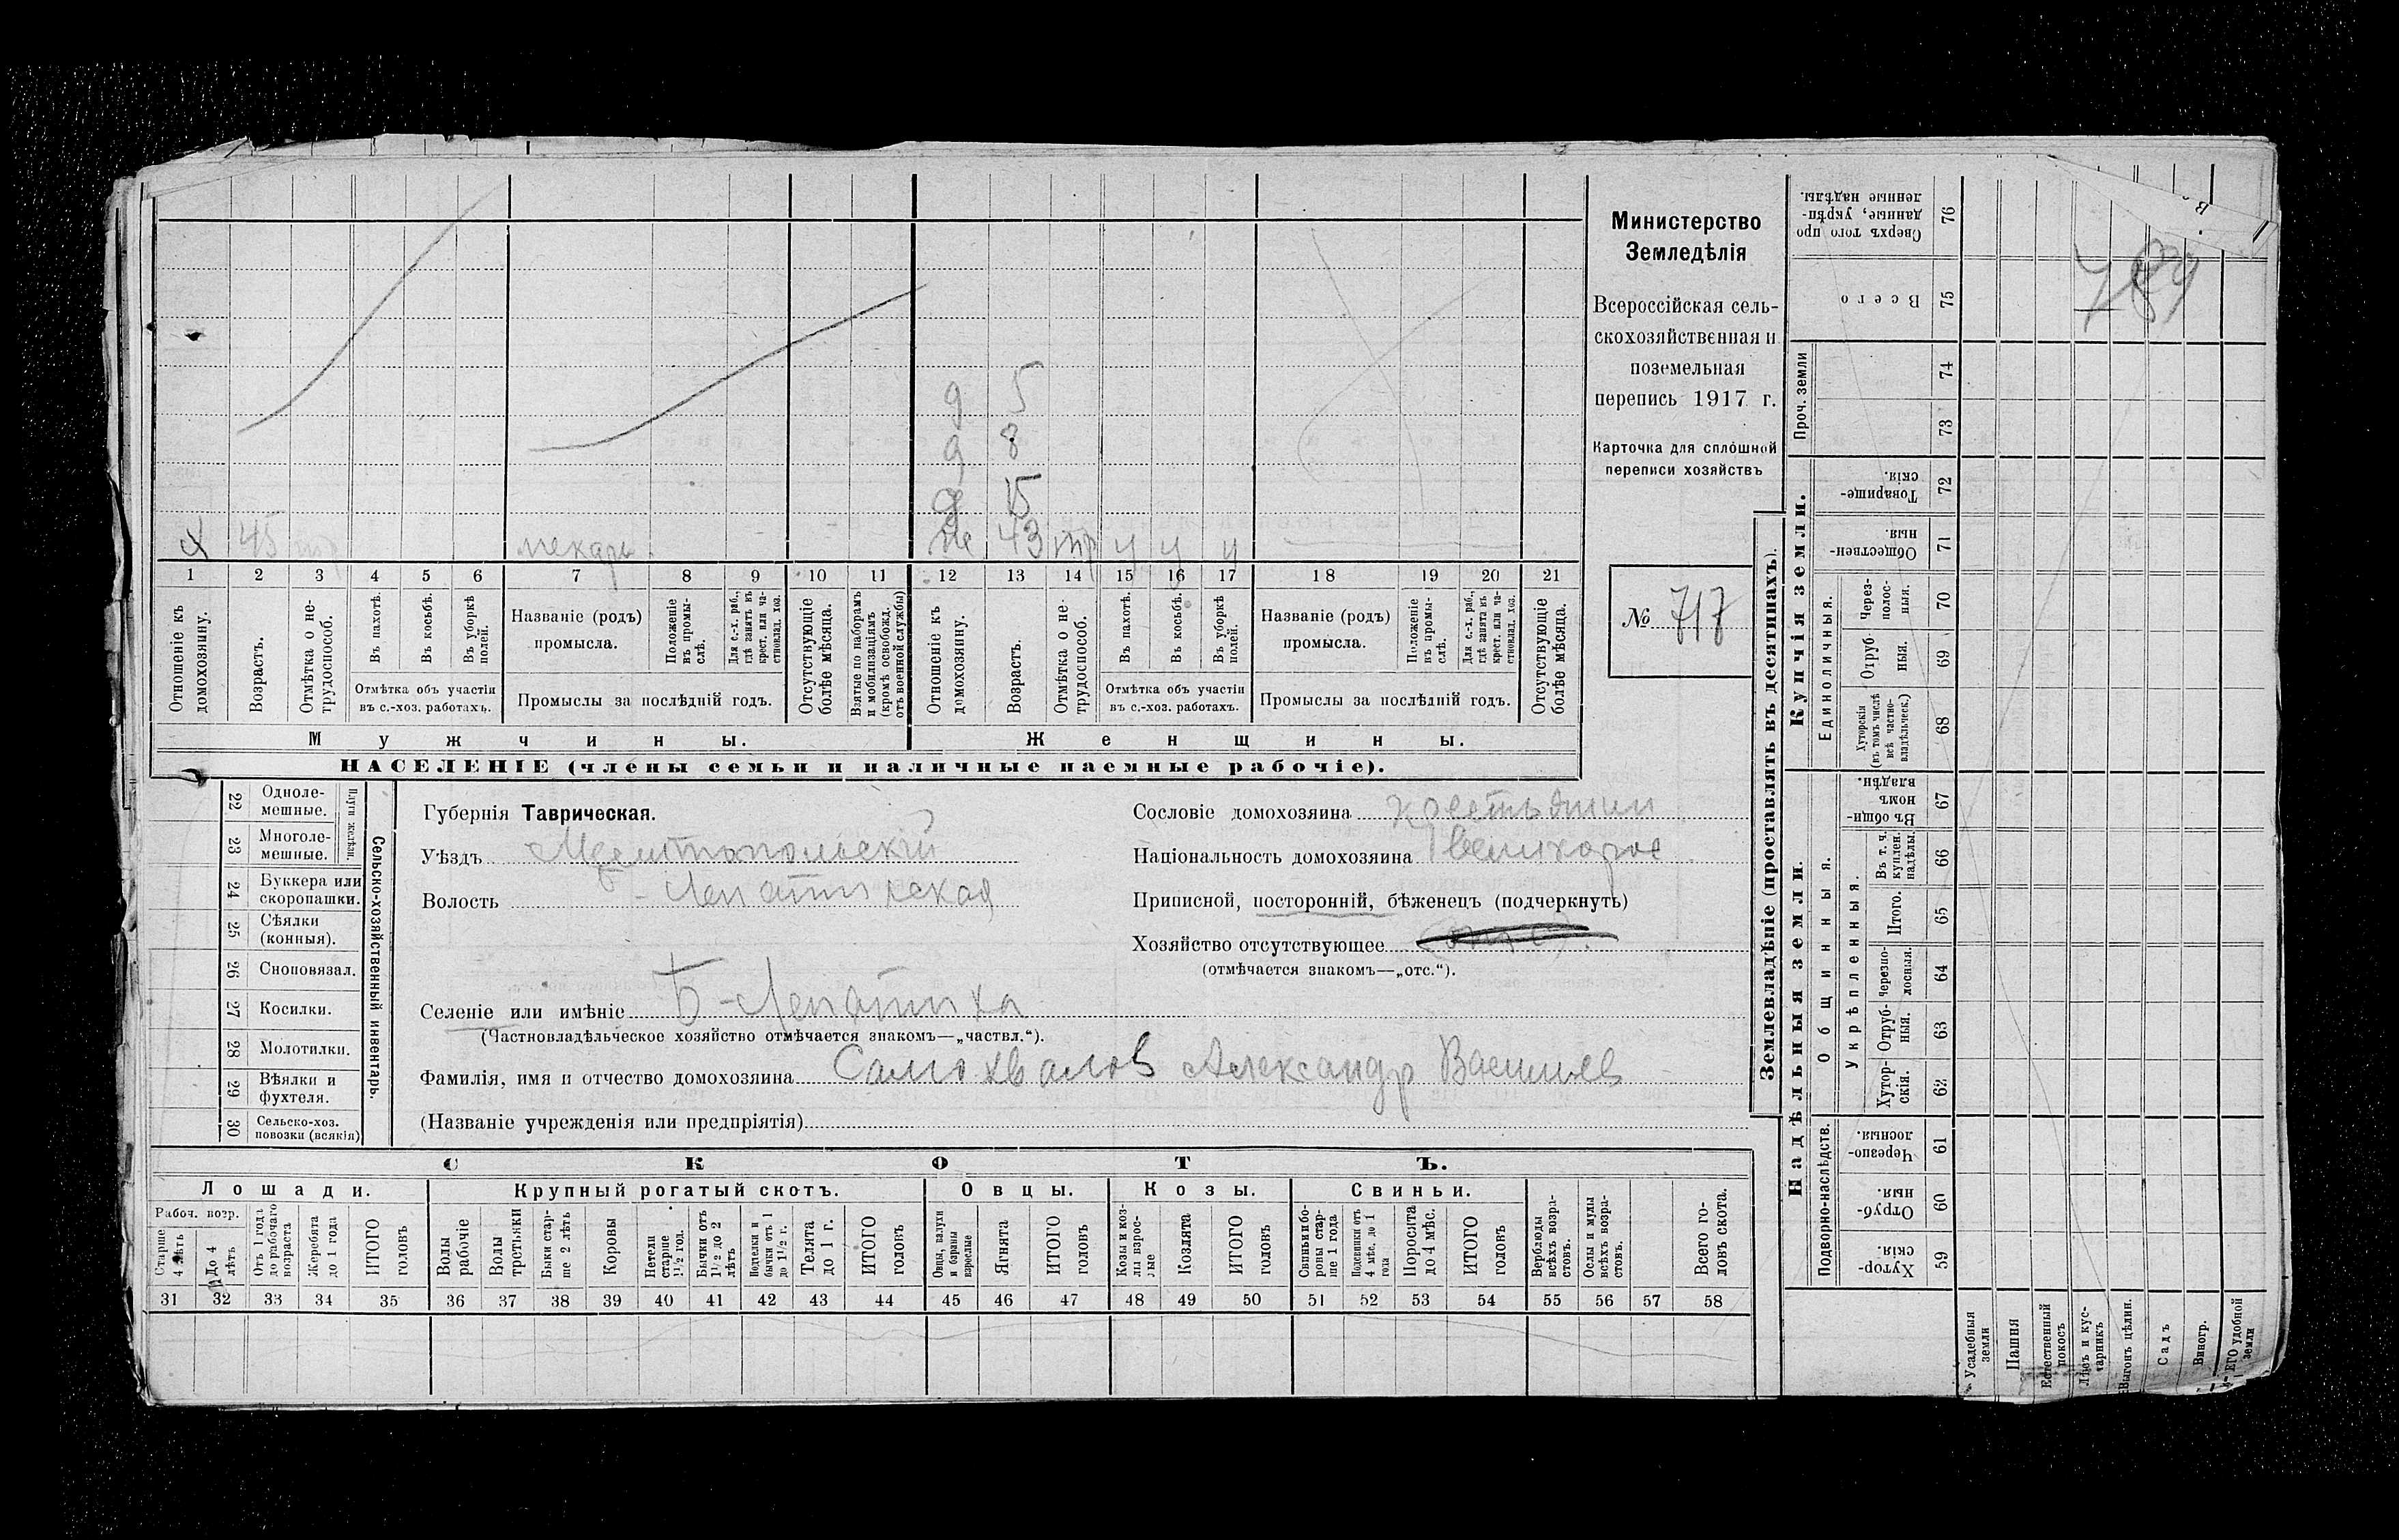 Министерство
Земледѣлія
Всероссійская сель-
скохозяйственная и
поземельная
перепись 1917 г.
Карточка для сплошной
переписи хозяйствъ
№ 717
д 5
д 8
д 15
х 45 пекарь
43 тр ч ч ч
1 2 3 4 5 6 7 8 9 10 11 12 13 14 15 16 17 18 19 20 21
Отношеніе къ домохозяину.
Возрастъ.
Отмѣтка о не-трудоспособ.
Въ пахотѣ.
Въ косьбѣ.
Въ уборкѣ полей.
Отмѣтка объ участіи
въ с.-хоз. работахъ.
Названіе (родъ)
промысла.
Положеніе въ промы-слѣ.
Для с.-х. раб., гдѣ занятъ въ крест. или ча-стновлад. хоз.
Промыслы за послѣдній годъ.
Отсутствующіе болѣе мѣсяца.
Взятые по наборамъ и мобилизаціямъ (кромѣ освобожд. отъ военной службы)
Отношеніе къ домохозяину.
Возрастъ.
Отмѣтка о не-трудоспособ.
Въ пахотѣ.
Въ косьбѣ.
Въ уборкѣ полей.
Отмѣтка объ участіи
въ с.-хоз. работахъ.
Названіе (родъ)
промысла.
Положеніе въ промы-слѣ.
Для с.-х. раб., гдѣ занята въ крест. или ча-стновлад. хоз.
Промыслы за послѣдній годъ.
Отсутствующіе болѣе мѣсяца.
Мужчины. Женщины.
НАСЕЛЕНІЕ (члены семьи и наличные наемные рабочіе).
Сельско-хозяйственный инвентарь.
Плуги желѣзн.
22 Одноле-мешные.
23 Многоле-мешные.
24 Буккера или скоропашки.
25 Сѣялки (конныя).
26 Сноповязал.
27 Косилки.
28 Молотилки.
29 Вѣялки и фухтеля.
30 Сельско-хоз. повозки (всякія)
Губернія Таврическая.
Уѣздъ Мелитопольскій
Волость Б-Лепатихская
Селеніе или имѣніе Б-Лепатиха
(Частновладѣльческое хозяйство отмѣчается знакомъ—„частвл.“).
Фамилія, имя и отчество домохозяина Самохвалов Александр Васильев
(Названіе учрежденія или предпріятія)
Сословіе домохозяина крестьянин
Національность домохозяина великорос
Приписной, посторонній, бѣженец (подчеркнуть)
Хозяйство отсутствующее
(отмѣчается знакомъ—„отс.“).
СКОТЪ.
Лошади. Крупный рогатый скотъ. Овцы. Козы. Свиньи.
Рабоч. возр.
Старше 4 лѣтъ
До 4 лѣтъ
Отъ 1 года до рабочаго возраста
Жеребята до 1 года
ИТОГО головъ
Волы рабочіе
Волы третьяки
Быки стар-ше 2 лѣтъ
Коровы
Нетели старше 1½ год.
Бычки отъ 1½ до 2 лѣтъ
Подтелки и бычки отъ 1 до 1½ г.
Телята до 1 г.
ИТОГО головъ
Овцы, валухи и бараны взрослые
Ягнята
ИТОГО головъ
Козы и коз-лы взрос-лые
Козлята
ИТОГО головъ
Свиньи и бо-ровы стар-ше 1 года
Подсвинки отъ 4 мѣс. до 1 года
Поросята до 4 мѣс.
ИТОГО головъ
Верблюды всѣхъ возра-стовъ.
Ослы и мулы всѣхъ возра-стовъ.
Всего го-ловъ скота.
31 32 33 34 35 36 37 38 39 40 41 42 43 44 45 46 47 48 49 50 51 52 53 54 55 56 57 58
Землевладѣніе (проставлять въ десятинахъ).
Надѣльныя земли. Купчія земли.
Подворно-наслѣдств.
Общинныя.
Укрѣпленныя.
Единоличныя.
Проч. земли
59 Хутор-скія.
60 Отруб-ныя.
61 Черезпо-лосныя.
62 Хутор-скія.
63 Отруб-ныя.
64 Черезпо-лосныя.
65 Итого.
66 Въ т. ч. куплен. надѣлы.
67 Въ общи-номъ владѣн.
68 Хуторскія (въ томъ числѣ всѣ частно-владѣльческ.)
69 Отруб-ныя.
70 Через-полос-ныя.
71 Обществен-ныя.
72 Товарище-скія.
73
74
75 Всего
76 Сверхъ того про-данные, укрѣп-ленные надѣлы.
Усадебныя земли
Пашня
Естественный покосъ
Лѣсъ и кус-тарникъ
Выгонъ цѣлин.
Садъ
Виногр.
удобной земли